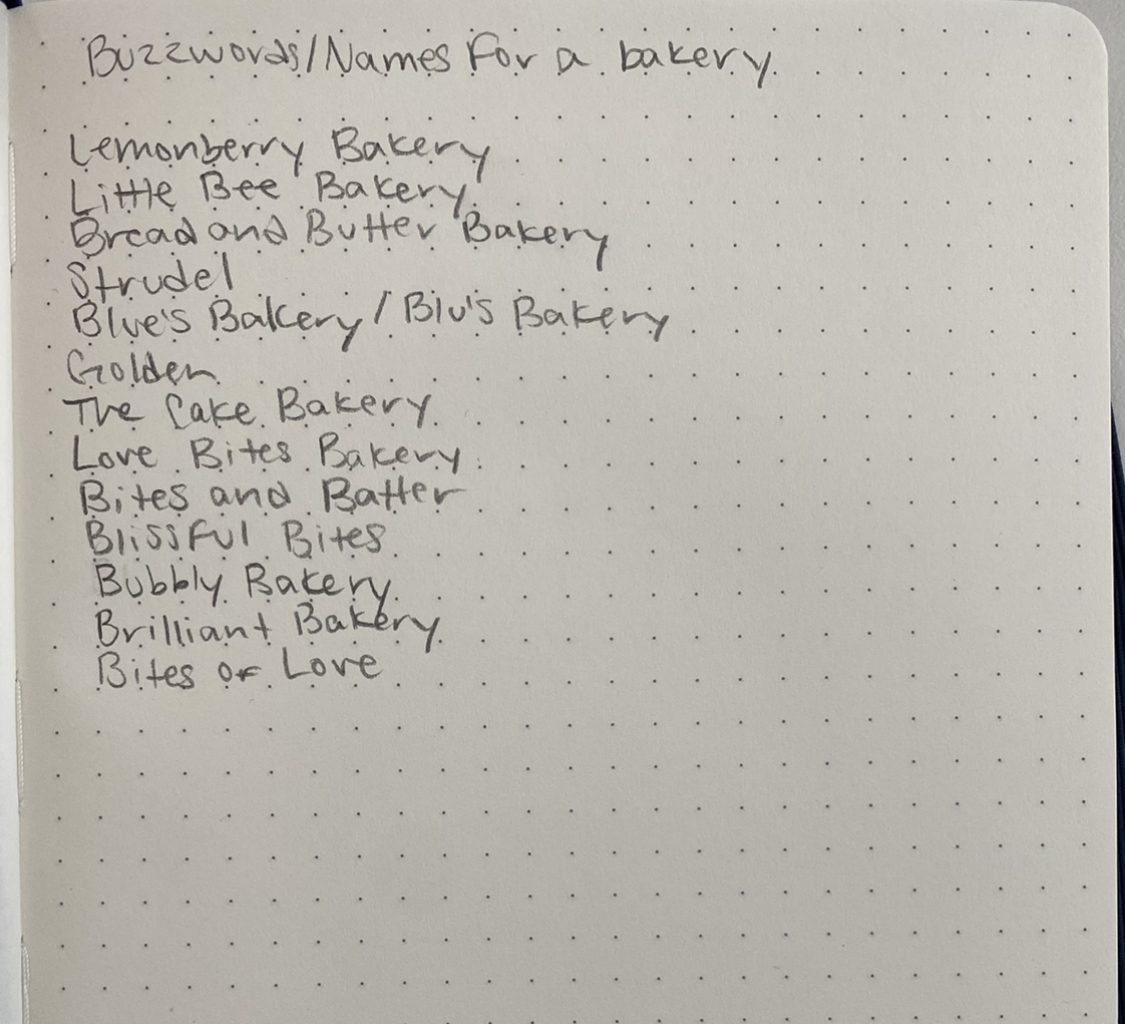 Buzzwords/Names For a bakery
Lemonberry Bakery
Little Bee Bakery
Bread and Butter Bakery
Strudel
Blue's Bakery / Blu's Bakery
Golden
The Cake Bakery
Love Bites Bakery
Bites and Batter
Blissful Bites
Bubbly Bakery
Brilliant Bakery
Bites of Love